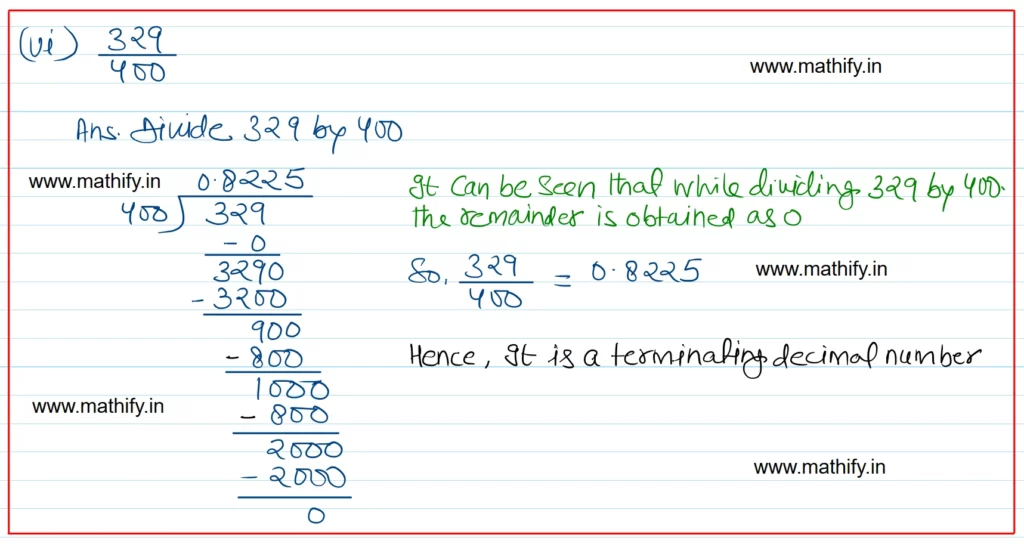 (vi) 329
400
www.mathify.in
Ans. Divide 329 by 400
www.mathify.in
0.8225
400 ) 329
- 0
3290
- 3200
900
- 800
1000
- 800
2000
- 2000
0
It can be seen that while dividing 329 by 400.
the remainder is obtained as 0
So, 329
400
= 0.8225
www.mathify.in
Hence, It is a terminating decimal number
www.mathify.in
www.mathify.in